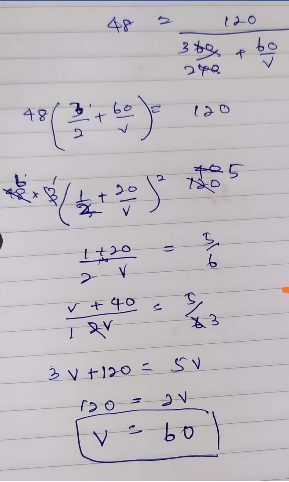 48 = 120 / (360/240 + 60/v)
48 (3/2 + 60/v) = 120
48 × 3 (1/2 + 20/v) = 120 5
1/2 + 20/v = 5/6
v + 40 / 1 2v = 5/6 3
3v + 120 = 5v
120 = 2v
v = 60